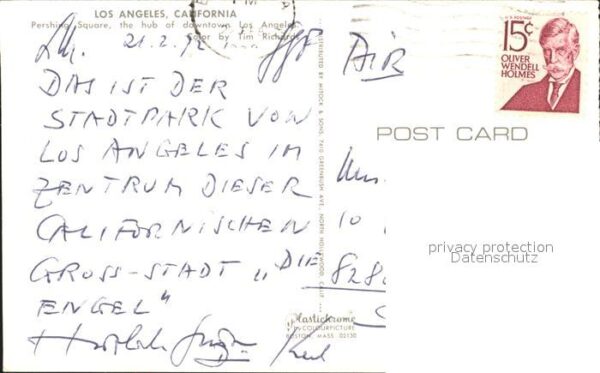 LOS ANGELES, CALIFORNIA
Pershing Square, the hub of downtown Los Angeles
Color by Tim Richards
21.2.72
DAS IST DER
STADTPARK VON
LOS ANGELES IM
ZENTRUM DIESER
CALIFORNISCHEN
GROSS-STADT „DIE
ENGEL"
Karl
DISTRIBUTED BY MITOCK & SONS, 7410 GREENBUSH AVE., NORTH HOLLYWOOD, CALIF.
Plastichrome
BY COLOURPICTURE
BOSTON, MASS. 02130
AIR
U.S. POSTAGE
15¢
OLIVER
WENDELL
HOLMES
POST CARD
10
828
privacy protection
Datenschutz